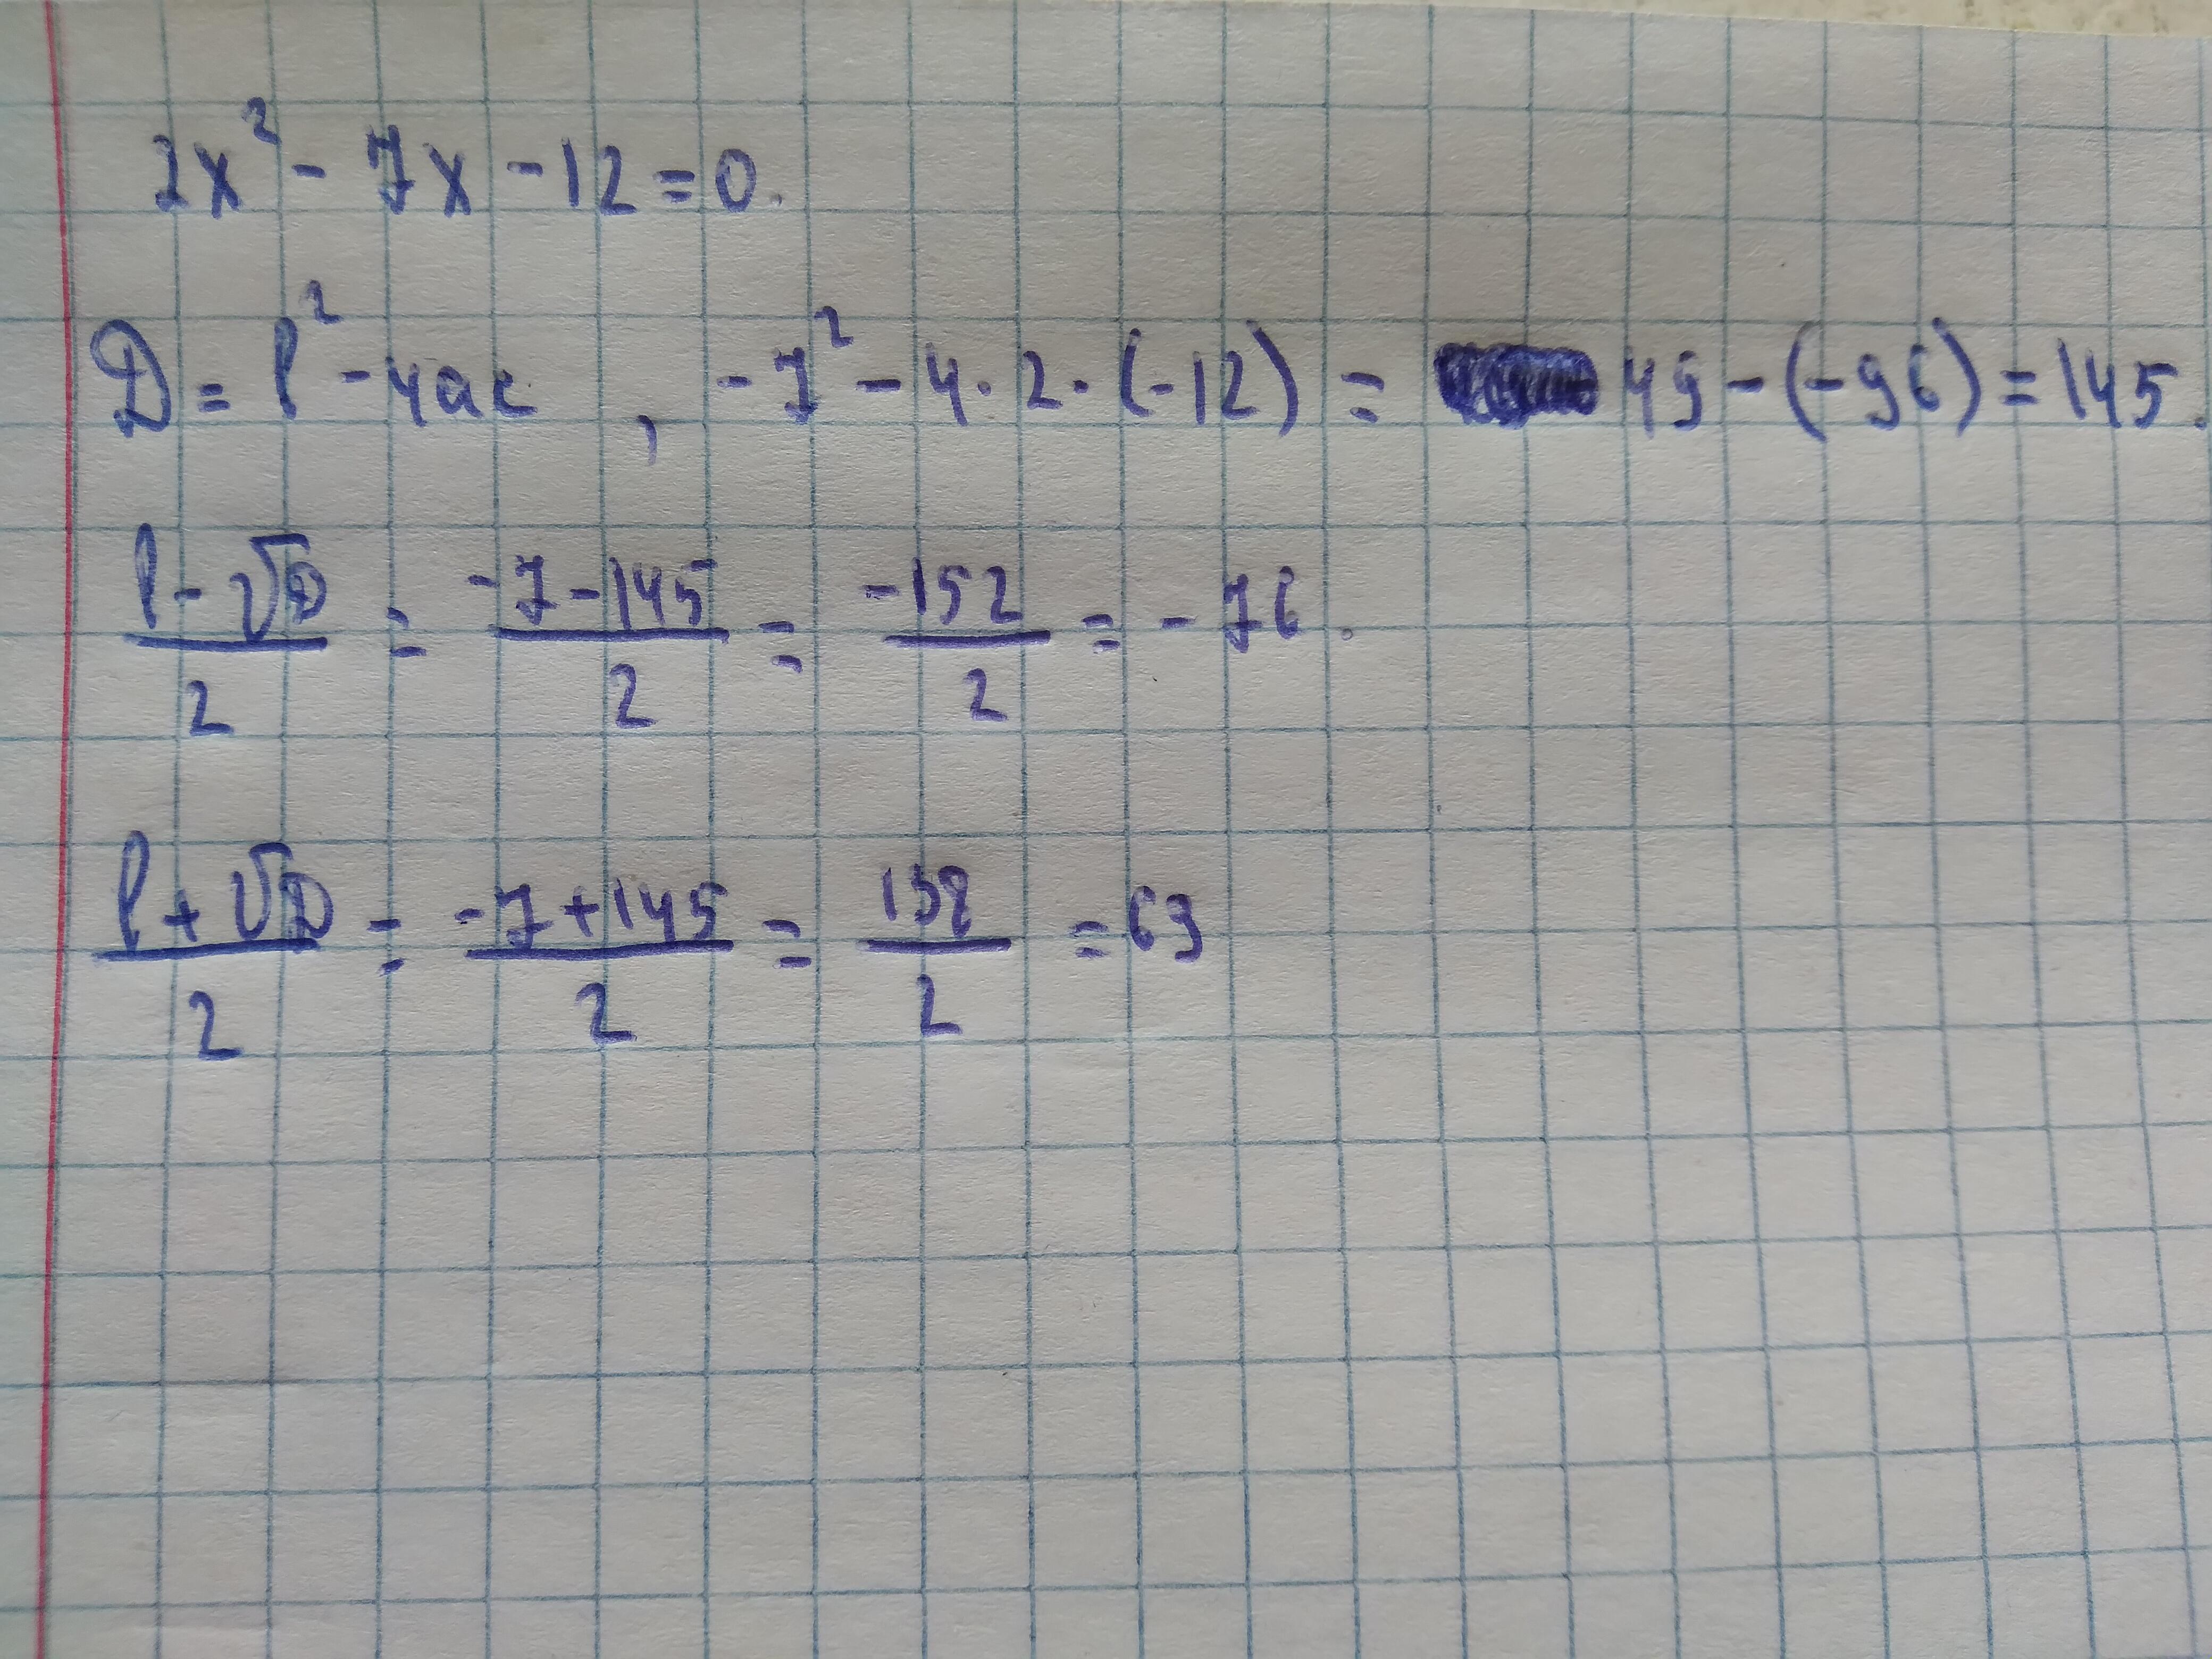 2x² - 7x - 12 = 0.
D = b² - 4ac , -7² - 4 · 2 · (-12) = 49 - (-96) = 145.
(b - √D)/2 = (-7 - 145)/2 = -152/2 = -76.
(b + √D)/2 = (-7 + 145)/2 = 138/2 = 69